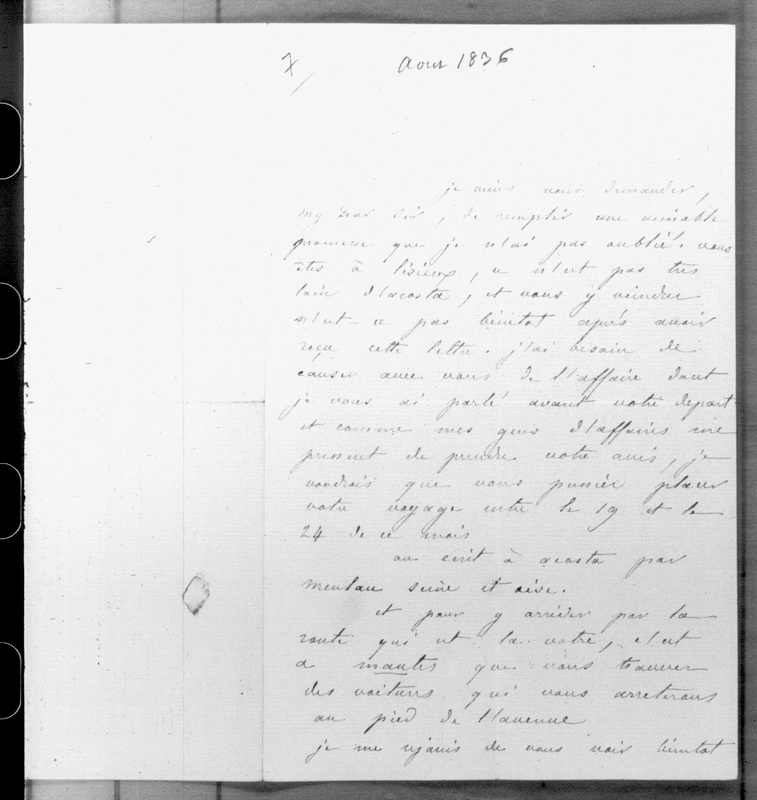 7/
Aout 1836
je viens vous demander,
my dear sir, de remplir une aimable
promesse que je n'ai pas oublié. vous
êtes à lisieux, ce n'est pas très
loin d'acosta, et vous y viendrez
n'est-ce pas bientot après avoir
reçu cette lettre. j'ai besoin de
causer avec vous de l'affaire dont
je vous ai parlé avant votre depart
et comme mes gens d'affaires me
pressent de prendre votre avis, je
voudrais que vous pussiez placer
votre voyage entre le 19 et le
24 de ce mois
on ecrit à acosta par
meulan seine et oise.
et pour y arriver par la
route qui est la votre, c'est
a mantes que vous trouver
des voitures qui vous arreterons
au pied de l'avenue
je me rejouis de vous voir bientot